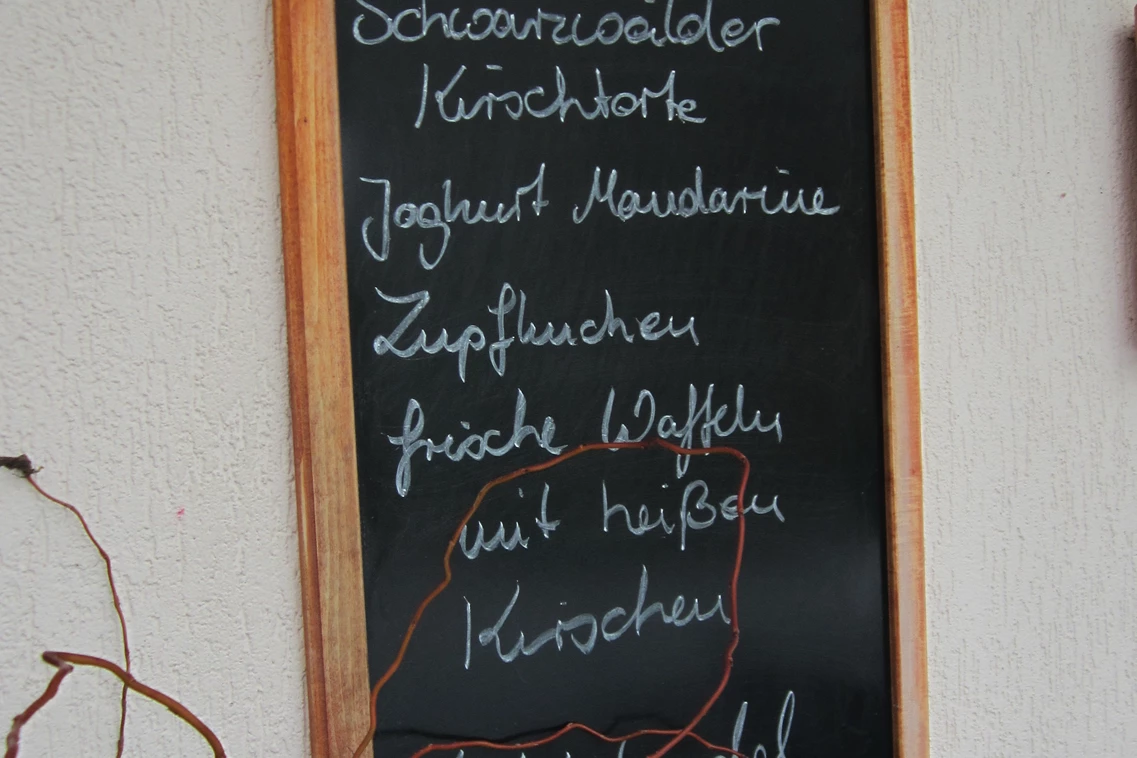 Schwarzwälder
Kirschtorte
Joghurt Mandarine
Zupfkuchen
frische Waffeln
mit heißen
Kirschen